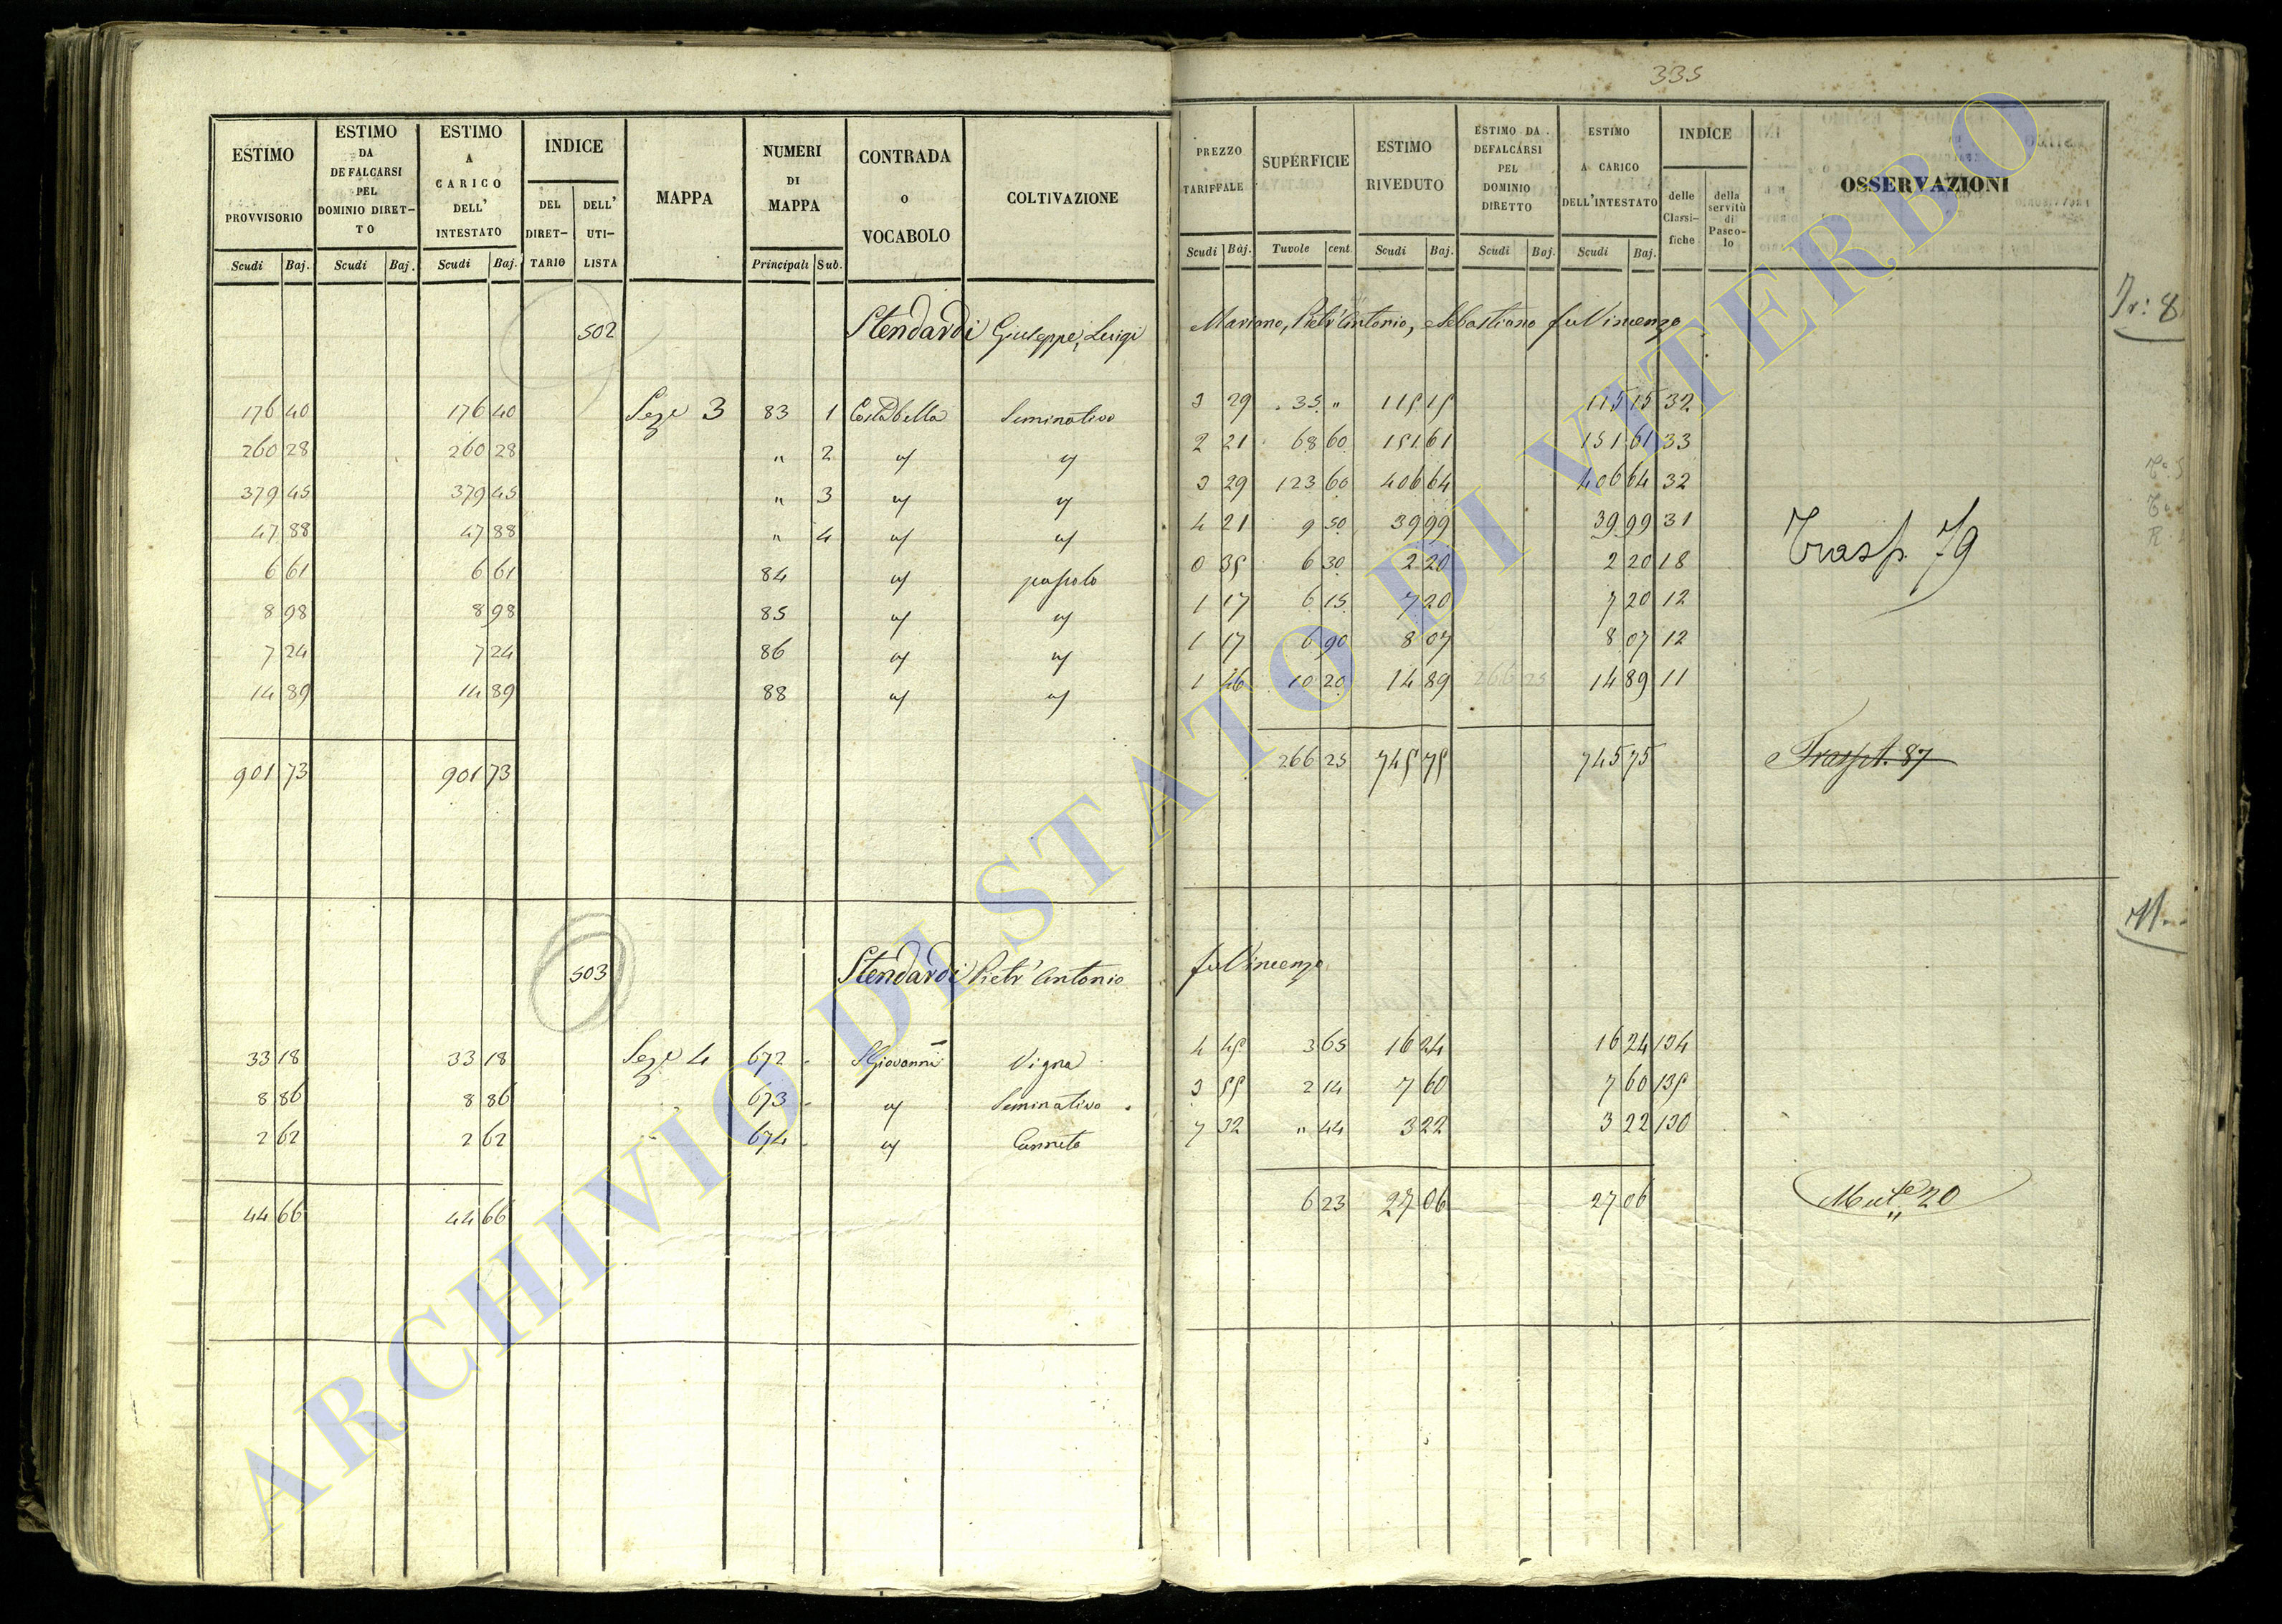 335
ESTIMO PROVVISORIO Scudi Baj.
ESTIMO DA DEFALCARSI PEL DOMINIO DIRET-TO Scudi Baj.
ESTIMO A CARICO DELL' INTESTATO Scudi Baj.
INDICE DEL DIRET-TARIO DELL' UTI-LISTA
MAPPA
NUMERI DI MAPPA Principali Sub.
CONTRADA O VOCABOLO
COLTIVAZIONE
PREZZO TARIFFALE Scudi Baj.
SUPERFICIE Tavole cent.
ESTIMO RIVEDUTO Scudi Baj.
ESTIMO DA DEFALCARSI PEL DOMINIO DIRETTO Scudi Baj.
ESTIMO A CARICO DELL'INTESTATO Scudi Baj.
INDICE delle Classi-fiche della servitù di Pasco-lo
OSSERVAZIONI
502 Stendardi Giuseppe, Luigi Mariano, Pietr'Antonio, Sebastiano fu Vincenzo
176 40 176 40 Seze 3 83 1 Costa bella Seminativo 3 29 35 " 115 15 115 15 32
260 28 260 28 " 2 " " 2 21 68 60 151 61 151 61 33
379 45 379 45 " 3 " " 3 29 123 60 406 64 406 64 32
47 88 47 88 " 4 " " 4 21 9 50 39 99 39 99 31
Trasp. 79
6 61 6 61 84 " pascolo 0 35 6 30 2 20 2 20 18
8 98 8 98 85 " " 1 17 6 15 7 20 7 20 12
7 24 7 24 86 " " 1 17 6 90 8 07 8 07 12
14 89 14 89 88 " " 1 46 10 20 14 89 266 25 14 89 11
901 73 901 73 266 25 745 75 745 75 Traspt. 87
503 Stendardi Pietr'Antonio fu Vincenzo
33 18 33 18 Seze 4 672 S Giovanni Vigna 4 45 3 65 16 24 16 24 134
8 86 8 86 673 " Seminativo 3 55 2 14 7 60 7 60 135
2 62 2 62 674 " Canneto 7 32 " 44 3 22 3 22 130
44 66 44 66 6 23 27 06 27 06 Mute 20
ARCHIVIO DI STATO DI VITERBO